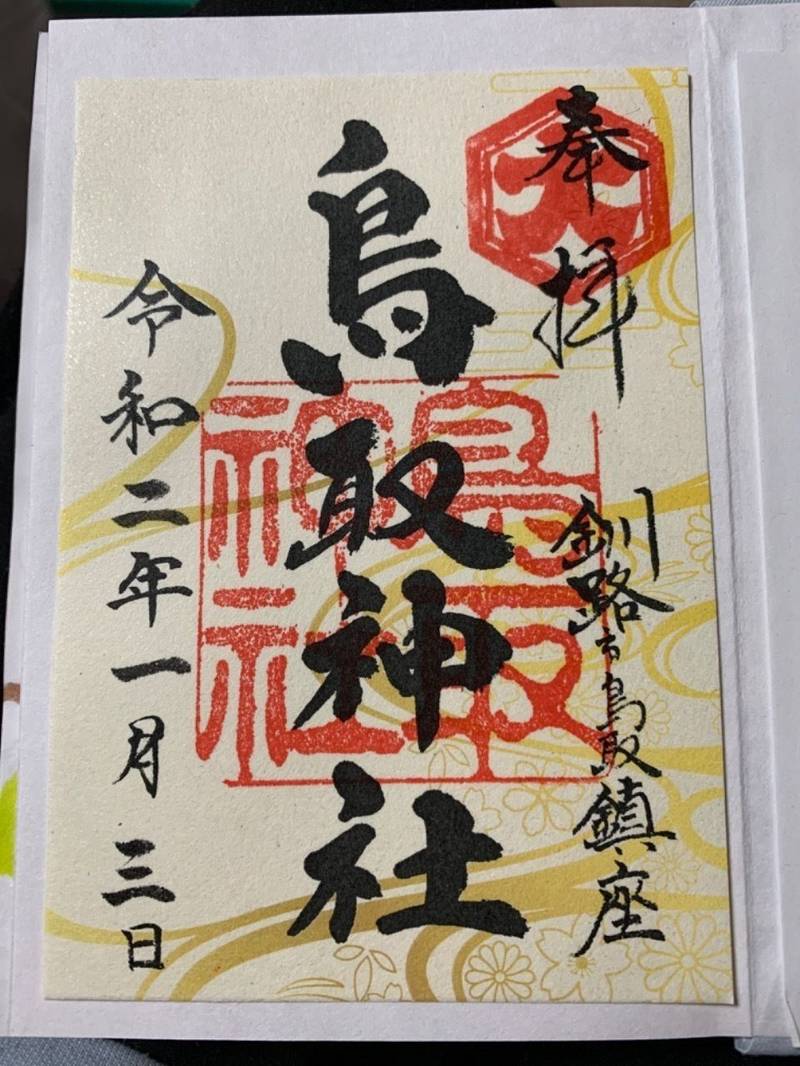 奉拝
釧路市鳥取鎮座
鳥取神社
鳥取神社
令和二年一月三日